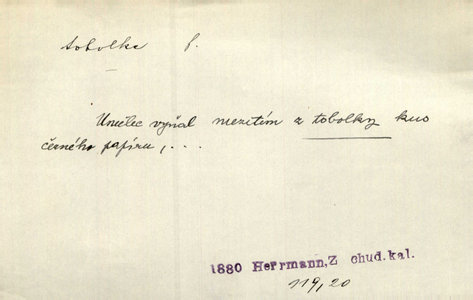 tobolka f.
Umělec vyňal mezitím z tobolky kus
černého papíru,...
1880 Herrmann,Z chud.kal.
119,20